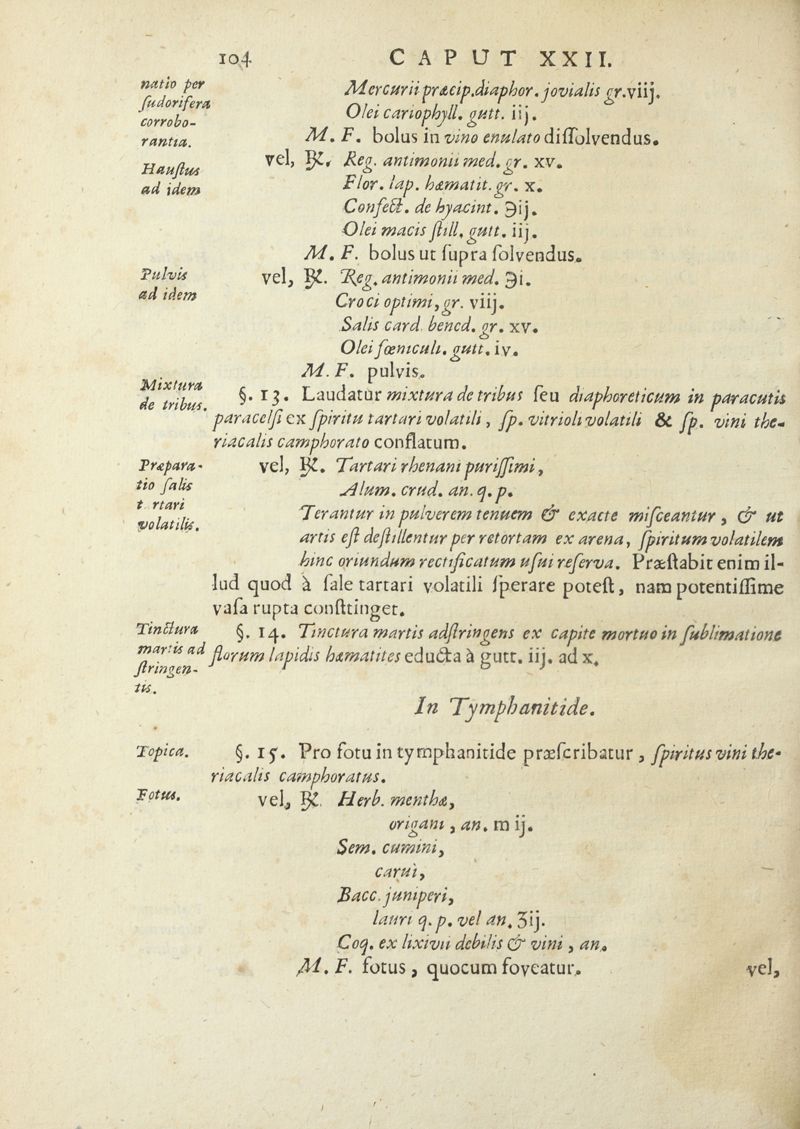 104 CAPUT XXII.
natio per
ſudorifera
corrobo-
rantia.
Hauſtus
ad idem
Mercurii præcip. diaphor. jovialis gr. viij.
Olei cariophyll. gutt. iij.
M. F. bolus in vino enulato diſſolvendus.
vel, ℞. Reg. antimonii med. gr. xv.
Flor. lap. hæmatit. gr. x.
Confect. de hyacint. ℈ij.
Olei macis ſtill. gutt. iij.
M. F. bolus ut ſupra ſolvendus.
Pulvis
ad idem
vel, ℞. Reg. antimonii med. ℈i.
Croci optimi, gr. viij.
Salis card. bened. gr. xv.
Olei fœniculi. gutt. iv.
M. F. pulvis.
Mixtura
de tribus.
§. 13. Laudatur mixtura de tribus ſeu diaphoreticum in paracutis
paracelſi ex ſpiritu tartari volatili, ſp. vitrioli volatili & ſp. vini the-
riacalis camphorato conflatum.
Præpara-
tio ſalis
t rtari
volatilis.
vel, ℞. Tartari rhenani puriſſimi,
Alum. crud. an. q. p.
Terantur in pulverem tenuem & exacte miſceantur, & ut
artis eſt deſtillentur per retortam ex arena, ſpiritum volatilem
hinc oriundum rectificatum uſui reſerva. Præſtabit enim il-
lud quod à ſale tartari volatili ſperare poteſt, nam potentiſſime
vaſa rupta conſttinget.
Tinctura
martis ad
ſtringen-
tis.
§. 14. Tinctura martis adſtringens ex capite mortuo in ſublimatione
florum lapidis hæmatites educta à gutt. iij. ad x.
In Tymphanitide.
Topica.
§. 15. Pro fotu in tymphanitide præſcribatur, ſpiritus vini the-
riacalis camphoratus.
Fotus.
vel, ℞. Herb. menthæ,
origani, an. m ij.
Sem. cumini,
carui,
Bacc. juniperi,
lauri q. p. vel an. ʒij.
Coq. ex lixivii debilis & vini, an.
M. F. fotus, quocum foveatur.
vel,